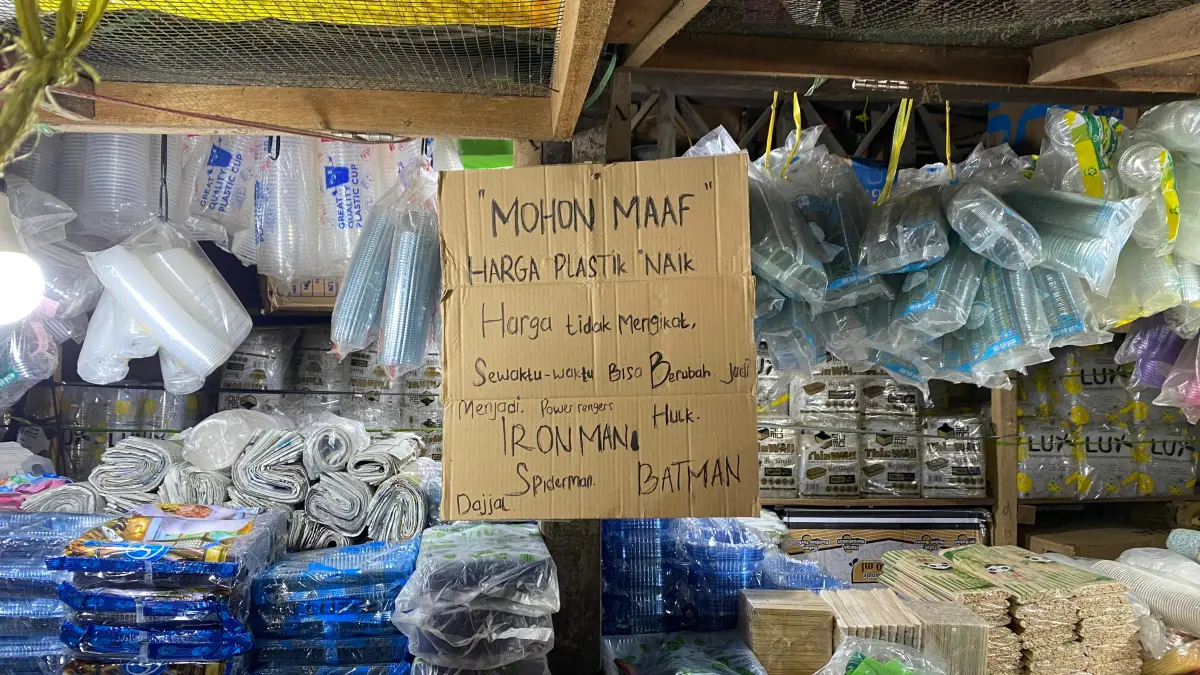 "MOHON MAAF"
HARGA PLASTIK NAIK
Harga tidak Mengikat.
Sewaktu-waktu Bisa Berubah Jadi
Menjadi. Power rengers Hulk.
IRON MAN
Spiderman. BATMAN
Dajjal.
GREAT
QUALITY
PLASTIC CUP
GREAT
QUALITY
PLASTIC CUP
LUX
LUX
LUX
LUX
ThinWall
Rectangle
ThinWall